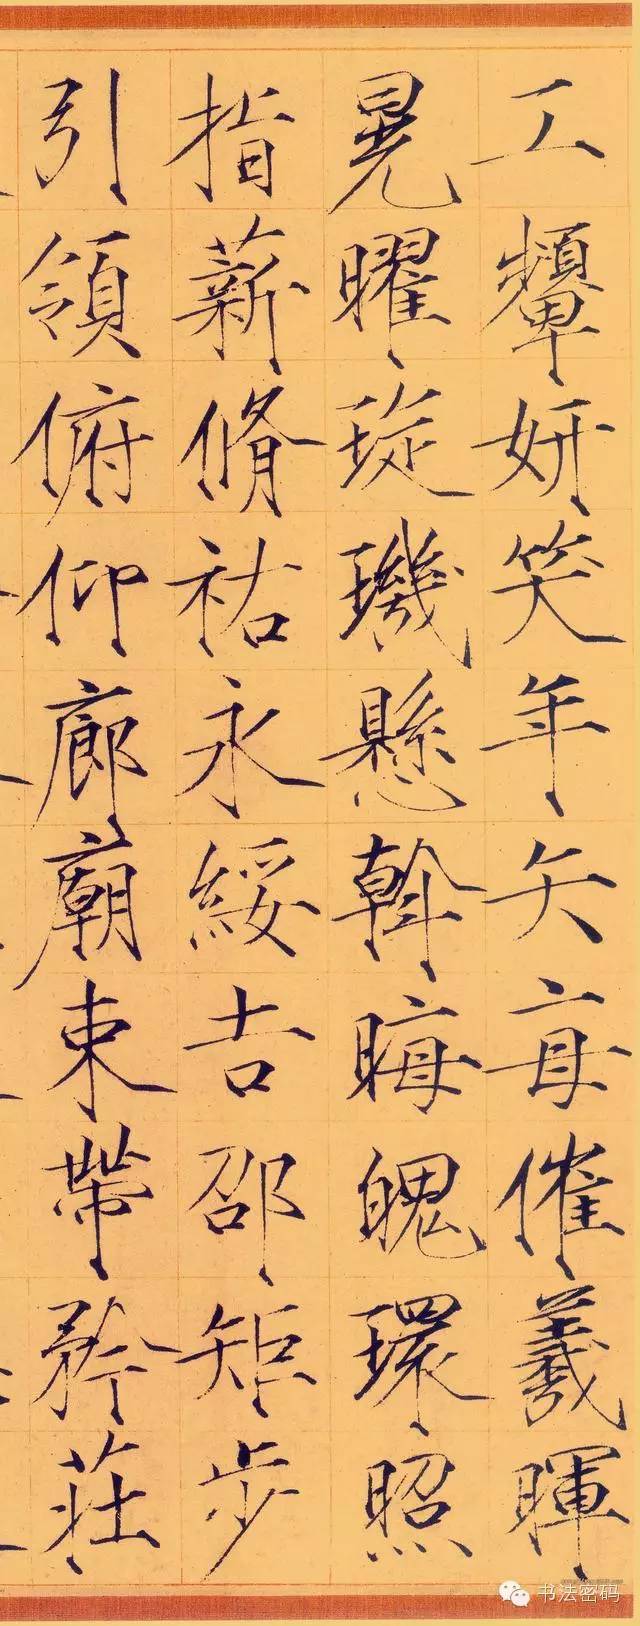 工顰妍笑年矢每催羲暉
晃曜琁璣懸斡晦魄環照
指薪脩祜永綏吉邵矩步
引領俯仰廊廟束帶矜莊
书法密码